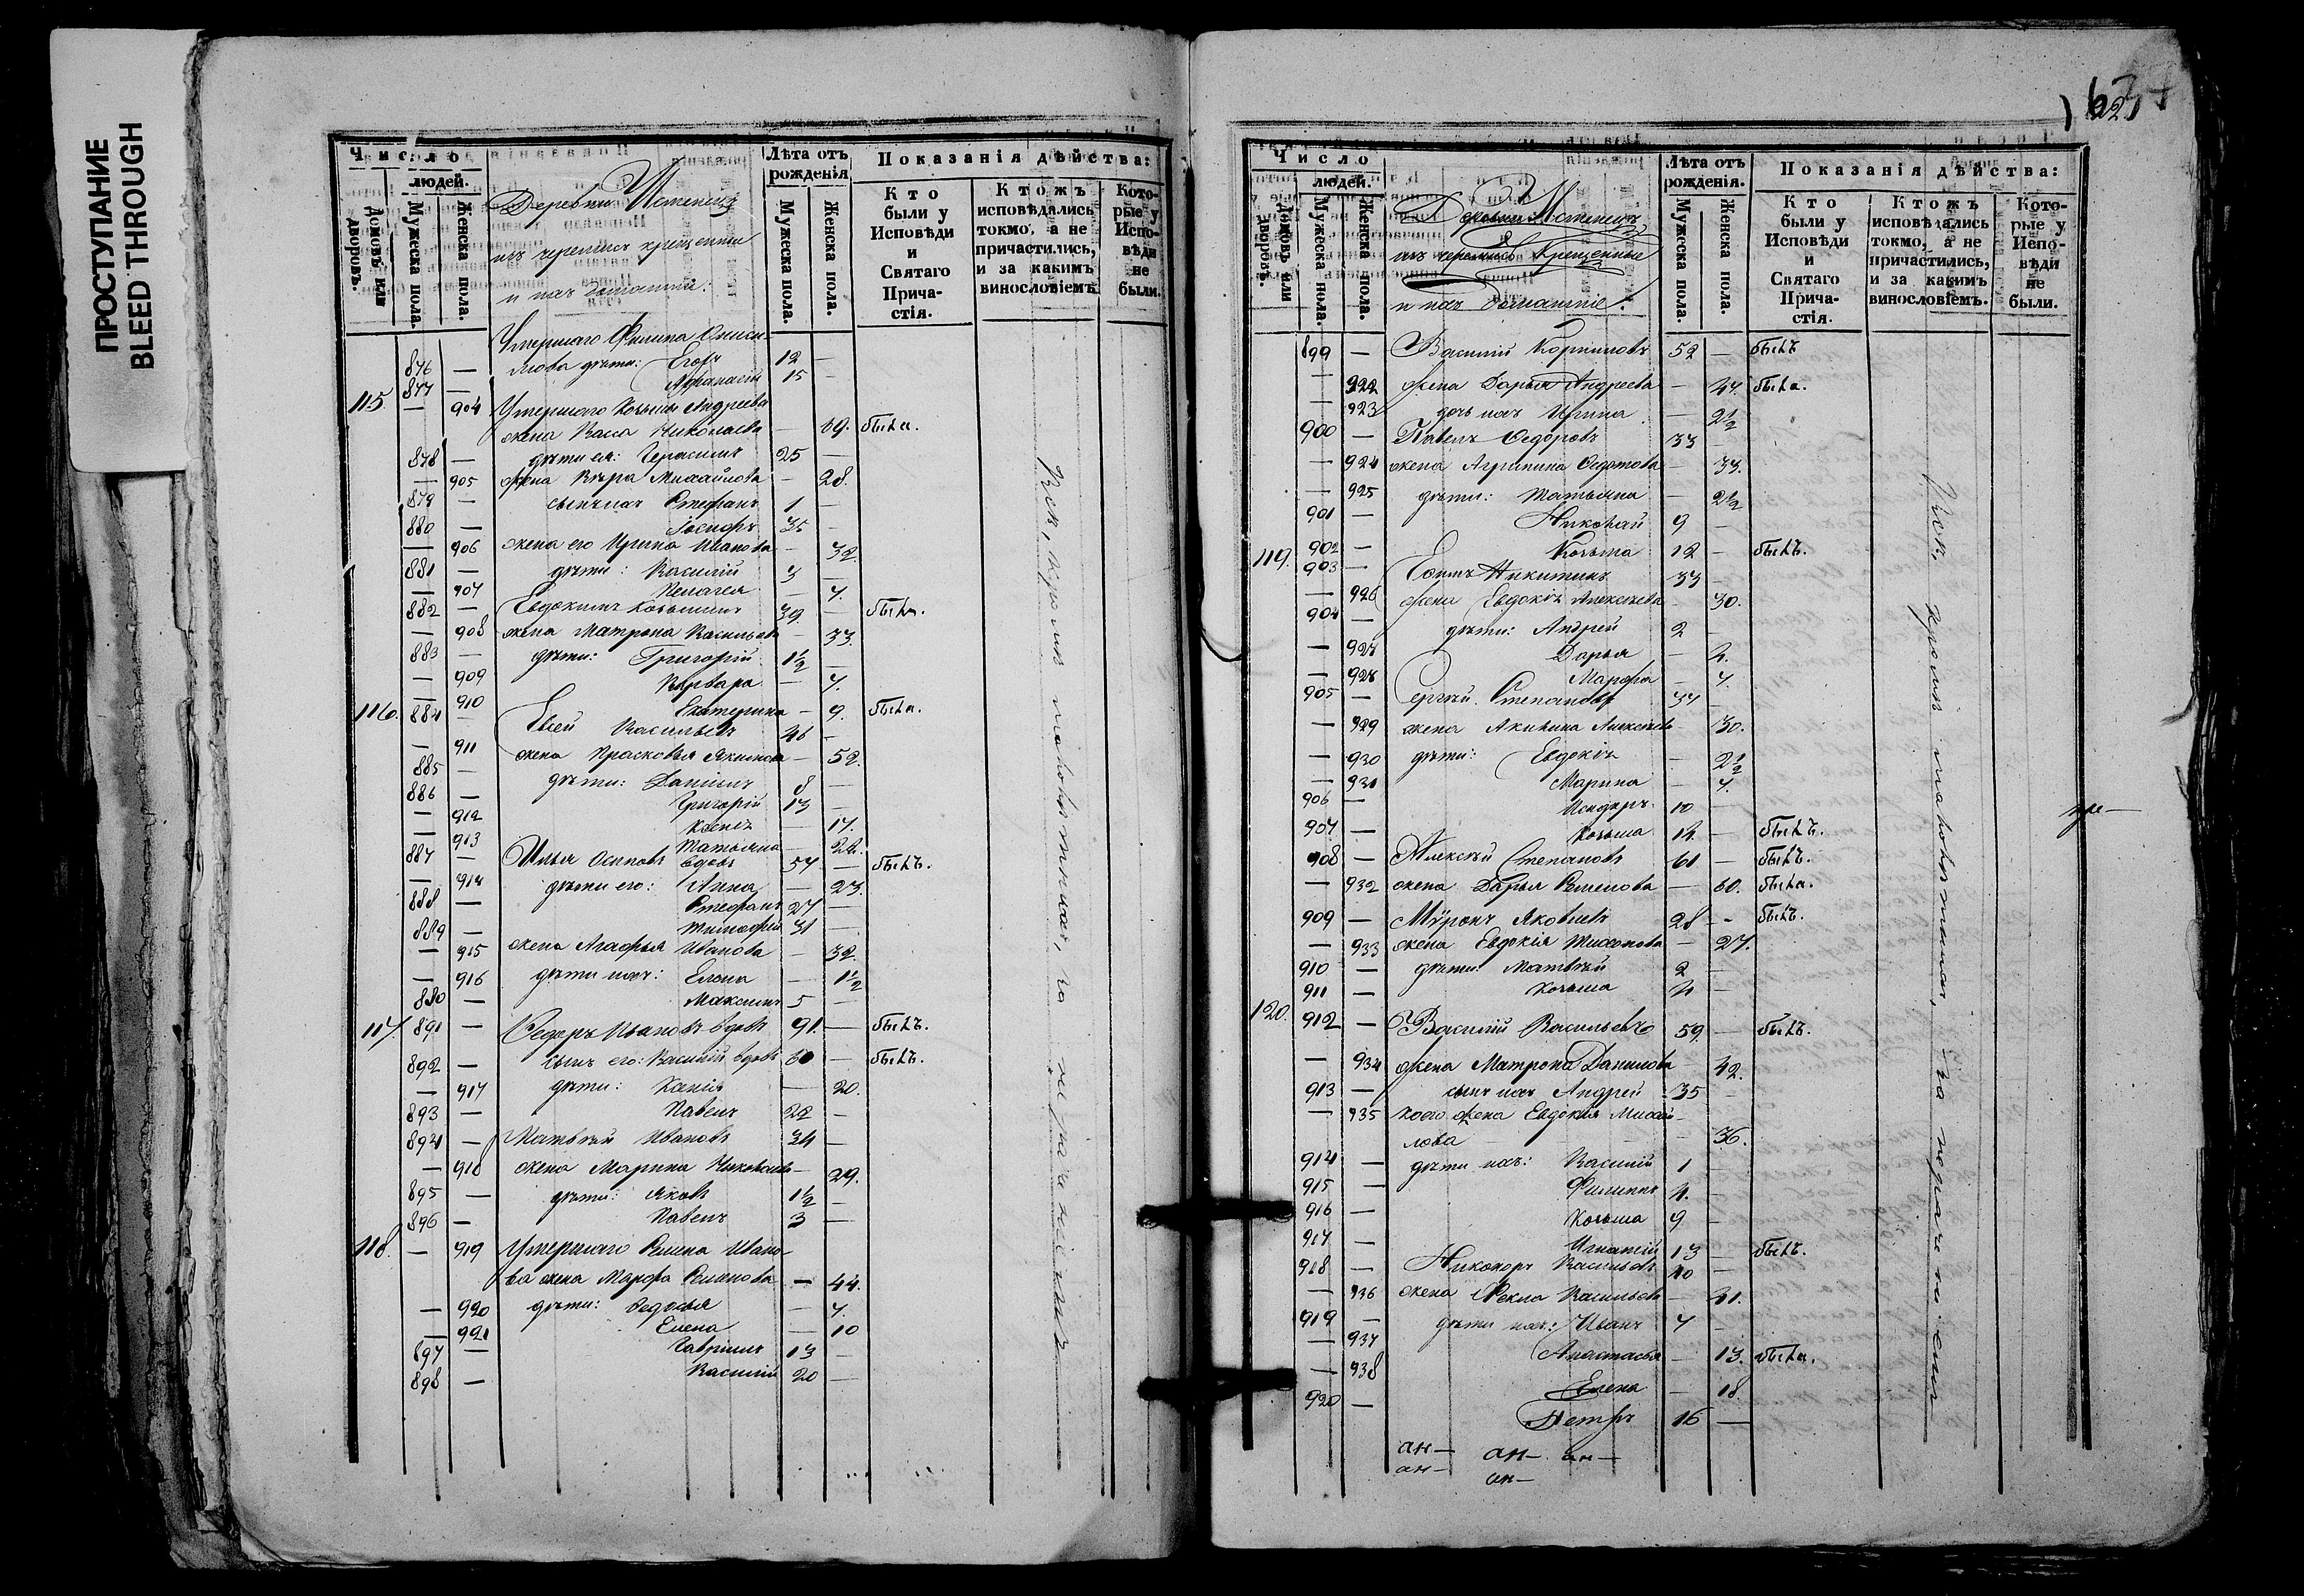 ПРОСТУПАНИЕ
BLEED THROUGH
Число
людей.
Домовъ или дворовъ.
Мужеска пола.
Женска пола.
Деревни
изъ черемисъ крещенные
и ихъ домашніе:
Лѣта отъ рожденія
Мужеска пола.
Женска пола.
Показанія дѣйства:
Кто были у Исповѣди и Святаго Прича-стія.
Ктожъ исповѣдались токмо, а не причастились, и за какимъ винословіемъ.
Кото-рые у Испо-вѣди не были.
Умершаго Филипа Ониси-
876 — мова дѣти: Егоръ 12 —
877 — Афанасій 15 —
115. — 904 Умершаго Козьмы Андреева
жена Васса Николаева — 69. была.
878 — дѣти ея: Герасимъ 25 —
— 905 жена Вѣра Михайлова — 28.
879 — сынъ ихъ Стефанъ 1 —
880 — Іосифъ 35 —
— 906 жена его Ирина Иванова — 32.
881 — дѣти: Василій 3 —
— 907 Пелагея — 7.
882 — Евдокимъ Козьминъ 39 — былъ.
— 908 жена Матрона Васильева — 33.
883 — дѣти: Григорій 1½ —
— 909 Варвара — 7.
— 910 Екатерина — 9. была.
116. 884 — Евсей Васильевъ 46 —
— 911 жена Прасковья Якимова — 52.
885 — дѣти: Даніилъ 8 —
886 — Григорій 13 —
— 912 Ксенія — 17.
— 913 Татьяна — 22.
887 — Илья Осиповъ вдовъ 57 — былъ.
— 914 дѣти его: Анна — 23.
888 — Стефанъ 27 —
889 — Тимофей 31 —
— 915 жена Агафья Иванова — 32.
— 916 дѣти ихъ: Елена — 1½
890 — Максимъ 5 —
117. 891 — Ѳедоръ Ивановъ вдовъ 91. — былъ.
892 — сынъ его: Василій вдовъ 60 — былъ.
— 917 дѣти: Ксенія — 20.
893 — Павелъ 22 —
894 — Матвѣй Ивановъ 34 —
— 918 жена Марина Николаева — 29.
895 — дѣти: Яковъ 1½ —
896 — Павелъ 3 —
118. — 919 Умершаго Семена Ивано-
ва жена Марфа Семенова — 44.
— 920 дѣти: Ѳедосья — 7.
— 921 Елена — 10
897 — Гавріилъ 13 —
898 — Василій 20 —
Число
людей.
Домовъ или дворовъ.
Мужеска пола.
Женска пола.
Деревни
изъ черемисъ Крещенные
и ихъ домашніе:
Лѣта отъ рожденія.
Мужеска пола.
Женска пола.
Показанія дѣйства:
Кто были у Исповѣди и Святаго Прича-стія.
Ктожъ исповѣдались токмо, а не причастились, и за какимъ винословіемъ.
Кото-рые у Испо-вѣди не были.
899 — Василій Корниловъ 52 — былъ
— 922 жена Дарья Андреева — 47. была.
— 923 дочь ихъ Ирина — 2½
900 — Павелъ Ѳедоровъ 33 —
— 924 жена Агрипина Ѳедотова — 33.
— 925 дѣти: Татьяна — 2½
901 — Николай 9 —
902 — Козьма 12 — былъ.
119. 903 — Никитинъ 33
— 926 жена Евдокія Алексѣева — 30.
904 — дѣти: Андрей 2 —
— 927 Дарья — 4.
— 928 Марфа — 7.
905 — Сергѣй Степановъ 37 —
— 929 жена Акилина Алексѣева — 30.
— 930 дѣти: Евдокія — 2½
— 931 Марина — 7.
906 — Исидоръ 10 —
907 — Козьма 14. — былъ.
908 — Алексѣй Степановъ 61 — былъ.
— 932 жена Дарья Семенова — 60. была.
909 — Мѵронъ Яковлевъ 28 — былъ.
— 933 жена Евдокія Тихонова — 27.
910 — дѣти: Матвѣй 2 —
911 — Козьма 4 —
120. 912 — Василій Васильевъ 59 — былъ.
— 934 жена Матрона Данилова — 42.
913 — сынъ ихъ Андрей 35 —
— 935 коего жена Евдокія Михай-
лова — 36.
914 — дѣти ихъ: Василій 1 —
915 — Филиппъ 4. —
916 — Козьма 9 —
917 — Игнатій 13 — былъ.
918 — Никоноръ Васильевъ 40 —
— 936 жена Ѳекла Васильева — 41.
919 — дѣти ихъ: Иванъ 7 —
— 937 Анастасья — 13. была.
— 938 Елена — 18.
920 — Петръ 16 —
ан— ан— ан—
ан— ан—